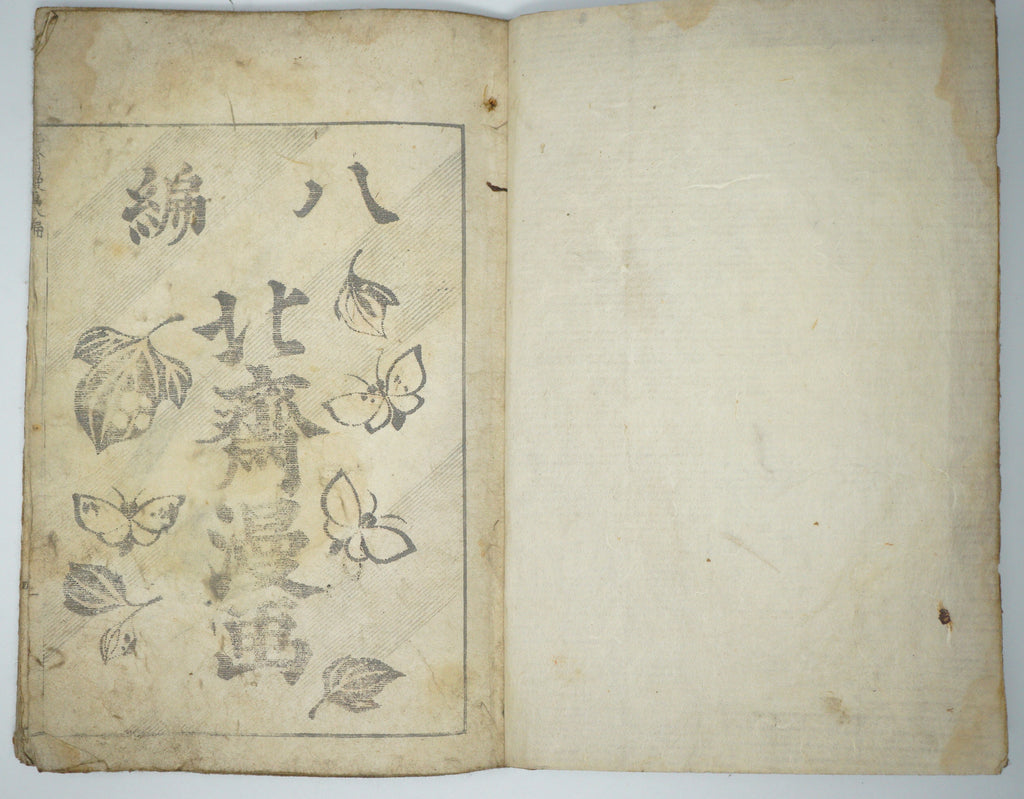 八編
北齋漫画